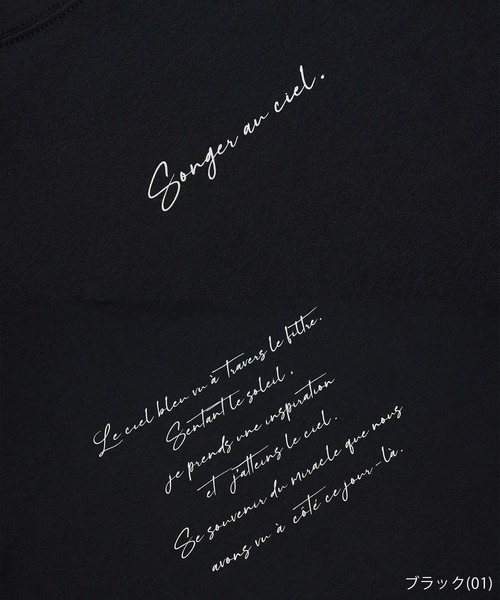 Songer au ciel.
Le ciel bleu vu à travers le filtre.
Sentant le soleil.
je prends une inspiration
et j'atteins le ciel.
Se souvenir du miracle que nous
avons vu à côté ce jour-là.
ブラック(01)